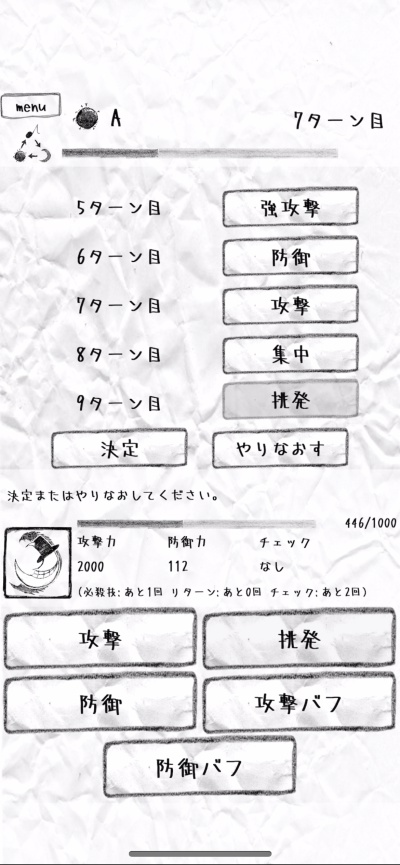 menu
A
7ターン目
5ターン目 強攻撃
6ターン目 防御
7ターン目 攻撃
8ターン目 集中
9ターン目 挑発
決定 やりなおす
決定またはやりなおしてください。
446/1000
攻撃力 防御力 チェック
2000 112 なし
(必殺技:あと1回 リターン:あと0回 チェック:あと2回)
攻撃 挑発
防御 攻撃バフ
防御バフ